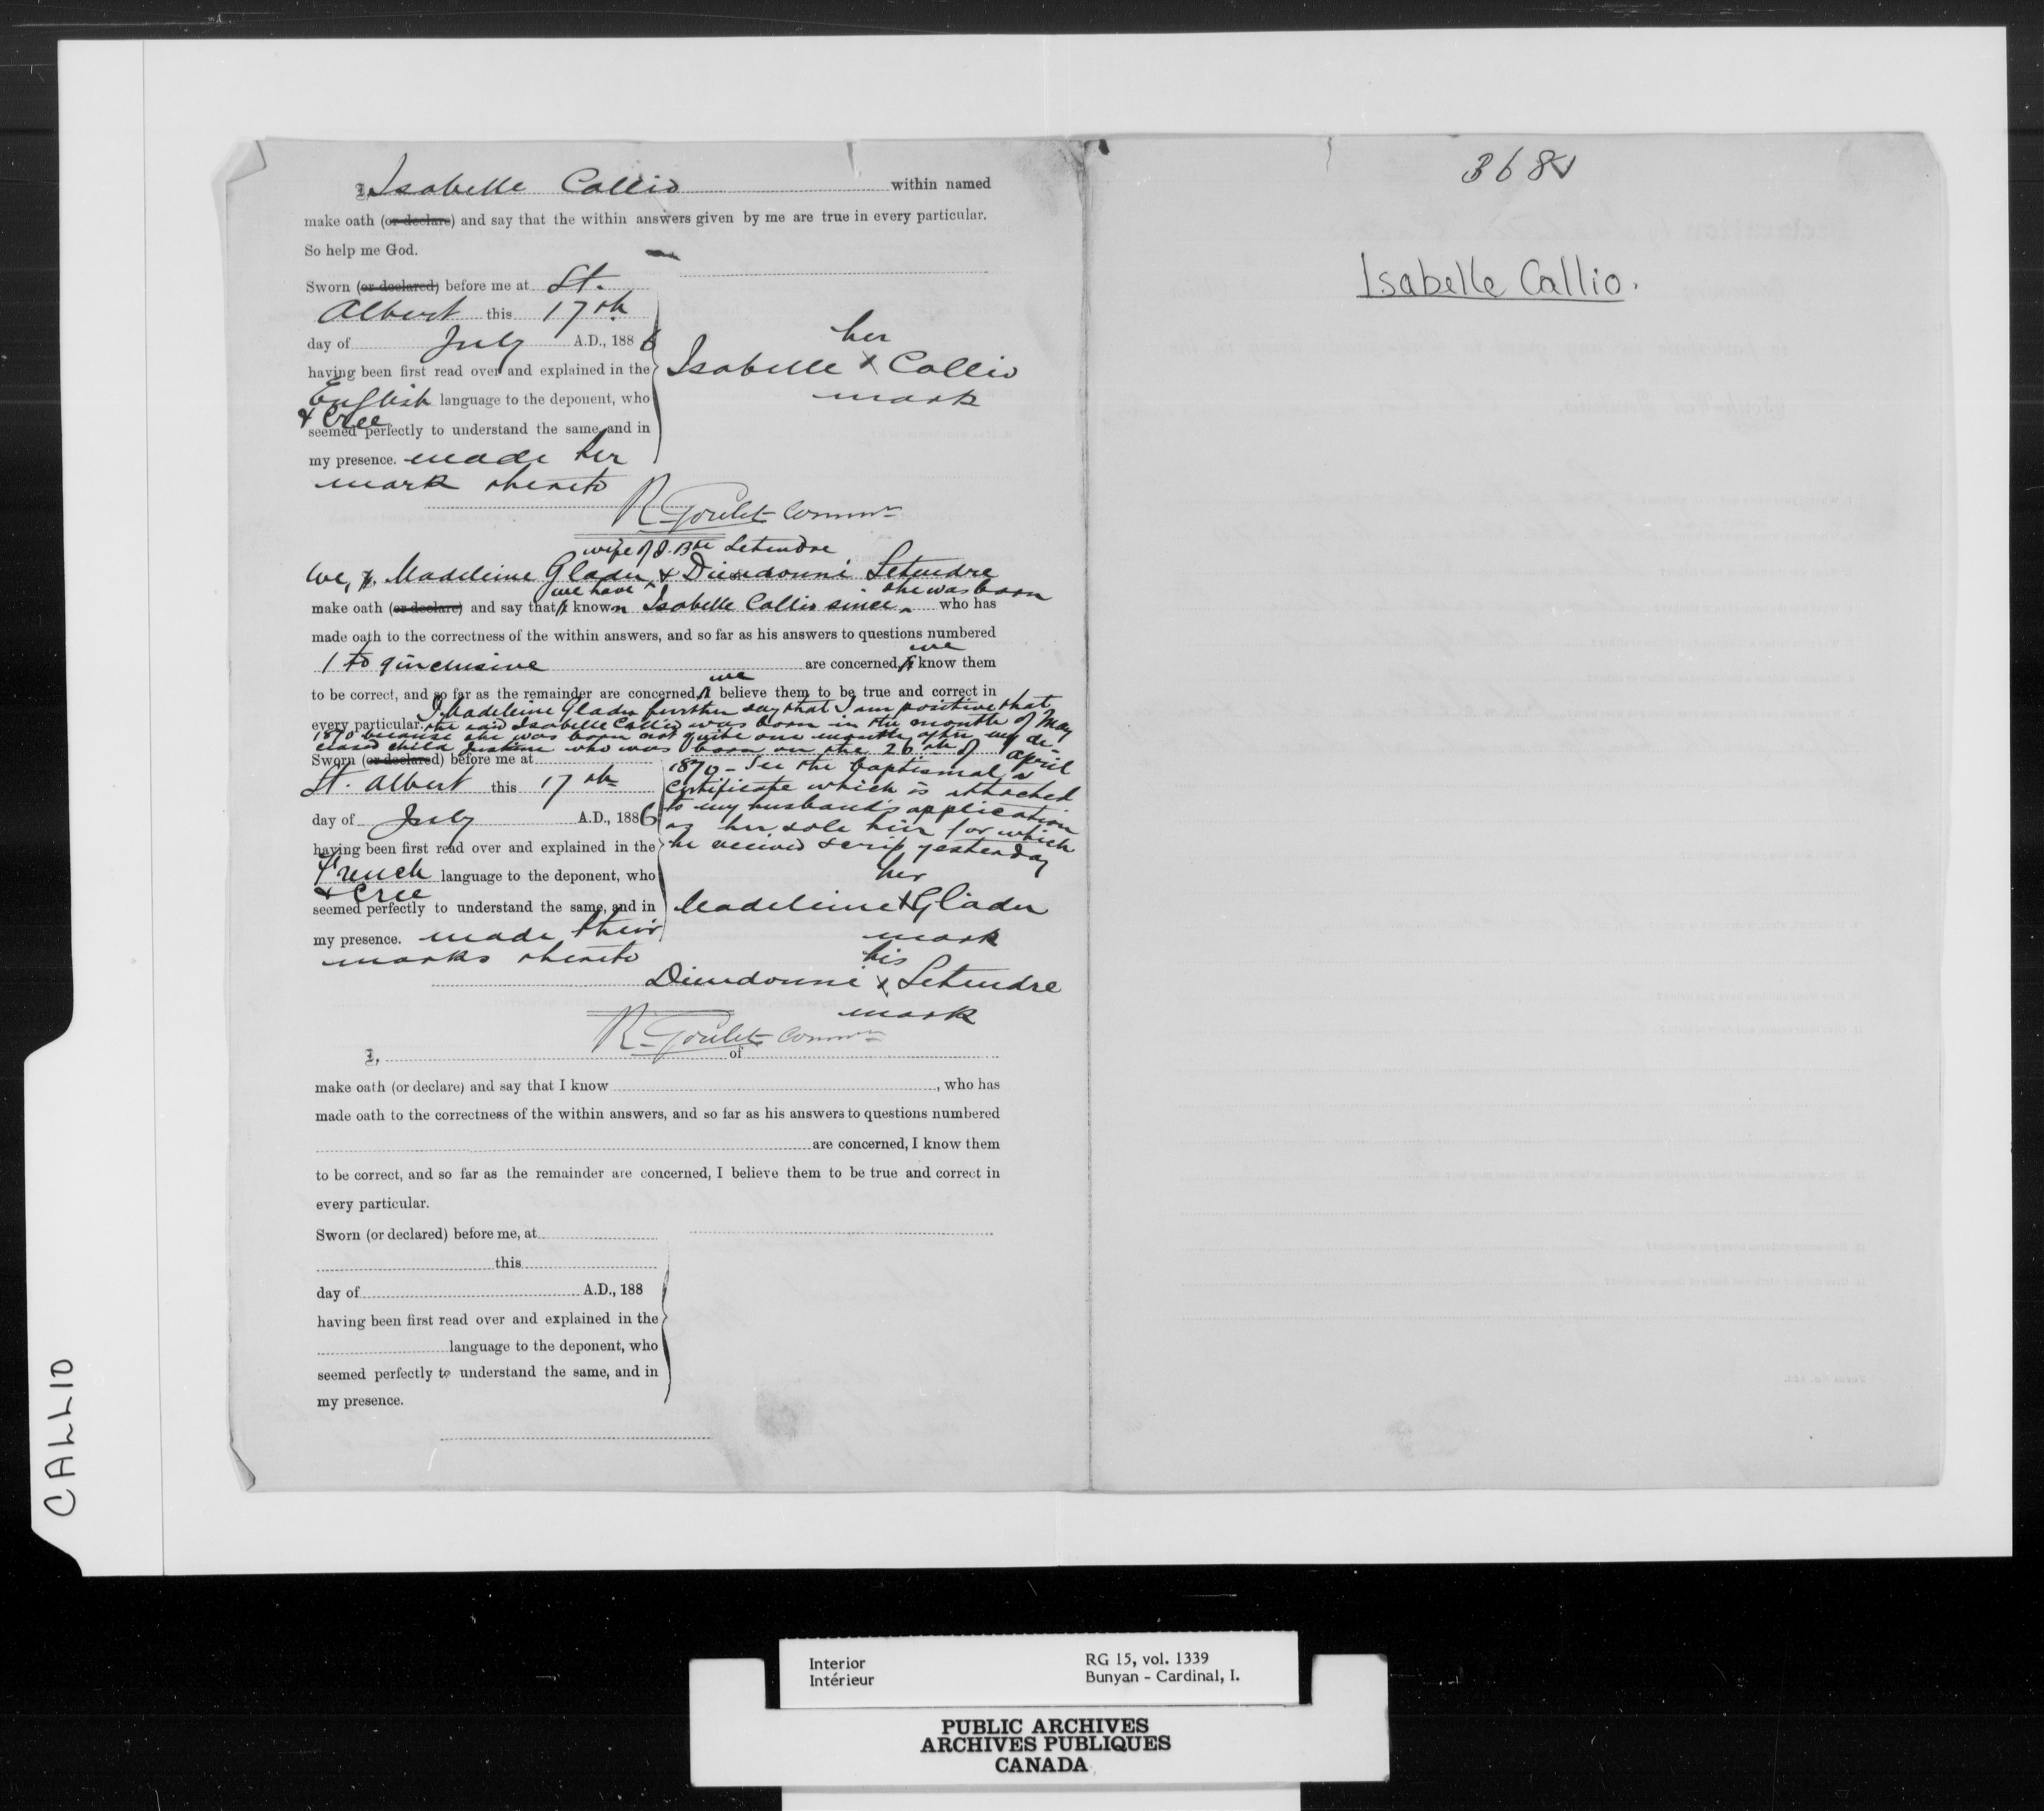 I, Isabelle Callio within named
make oath (or declare) and say that the within answers given by me are true in every particular.
So help me God.
Sworn (or declared) before me at St.
Albert this 17th
day of July A.D., 1886
having been first read over and explained in the
English language to the deponent, who
& Cree
seemed perfectly to understand the same, and in
my presence. made her
mark thereto
her
Isabelle X Callio
mark
R. Goulet Commr
wife of J. Bte Letendre
We, I, Madeleine Gladu & Dieudonné Letendre
we have she was born
make oath (or declare) and say that I known Isabelle Callio since who has
made oath to the correctness of the within answers, and so far as his answers to questions numbered
we
1 to 9 inclusive are concerned, I know them
we
to be correct, and so far as the remainder are concerned, I believe them to be true and correct in
I Madeleine Gladu further say that I am positive that
every particular. the said Isabelle Callio was born in the month of May
1870 because she was born not quite one month after my de-
ceased child Justine who was born on the 26th of April
1870 - See the baptismal
certificate which is attached
to my husband's application
as her sole heir for which
he received scrip yesterday
Sworn (or declared) before me at
St. Albert this 17th
day of July A.D., 1886
having been first read over and explained in the
French language to the deponent, who
& Cree
seemed perfectly to understand the same, and in
my presence. made their
marks thereto
her
Madeleine X Gladu
mark
his
Dieudonné X Letendre
mark
R. Goulet Commr
I, of
make oath (or declare) and say that I know , who has
made oath to the correctness of the within answers, and so far as his answers to questions numbered
are concerned, I know them
to be correct, and so far as the remainder are concerned, I believe them to be true and correct in
every particular.
Sworn (or declared) before me, at
this
day of A.D., 188
having been first read over and explained in the
language to the deponent, who
seemed perfectly to understand the same, and in
my presence.
Isabelle Callio.
CALLIO
Interior
Intérieur
RG 15, vol. 1339
Bunyan - Cardinal, I.
PUBLIC ARCHIVES
ARCHIVES PUBLIQUES
CANADA